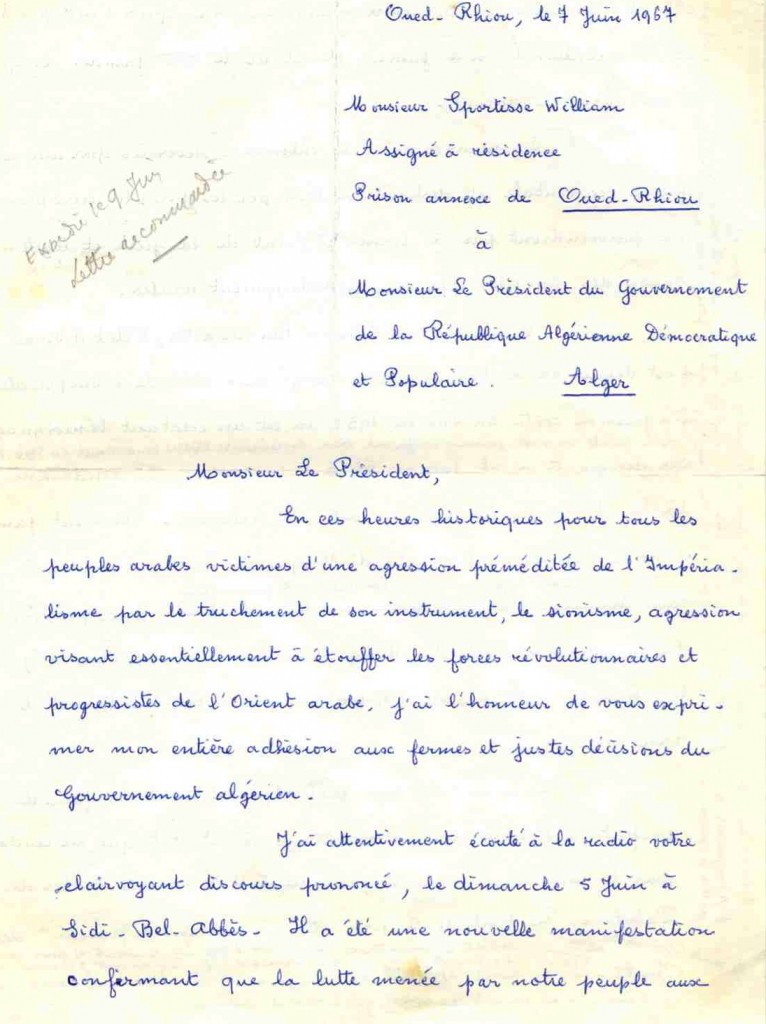 Oued-Rhiou, le 7 Juin 1967
Monsieur Sportisse William
Assigné à résidence
Prison annexe de Oued-Rhiou
à
Monsieur Le Président du Gouvernement
de la République Algérienne Démocratique
et Populaire. Alger
Expédié le 9 Juin
Lettre recommandée
Monsieur Le Président,
En ces heures historiques pour tous les
peuples arabes victimes d'une agression préméditée de l'Impéria-
lisme par le truchement de son instrument, le sionisme, agression
visant essentiellement à étouffer les forces révolutionnaires et
progressistes de l'Orient arabe, j'ai l'honneur de vous expri-
mer mon entière adhésion aux fermes et justes décisions du
Gouvernement algérien.
J'ai attentivement écouté à la radio votre
clairvoyant discours prononcé, le dimanche 5 Juin à
Sidi-Bel-Abbès- Il a été une nouvelle manifestation
confermant que la lutte menée par notre peuple aux